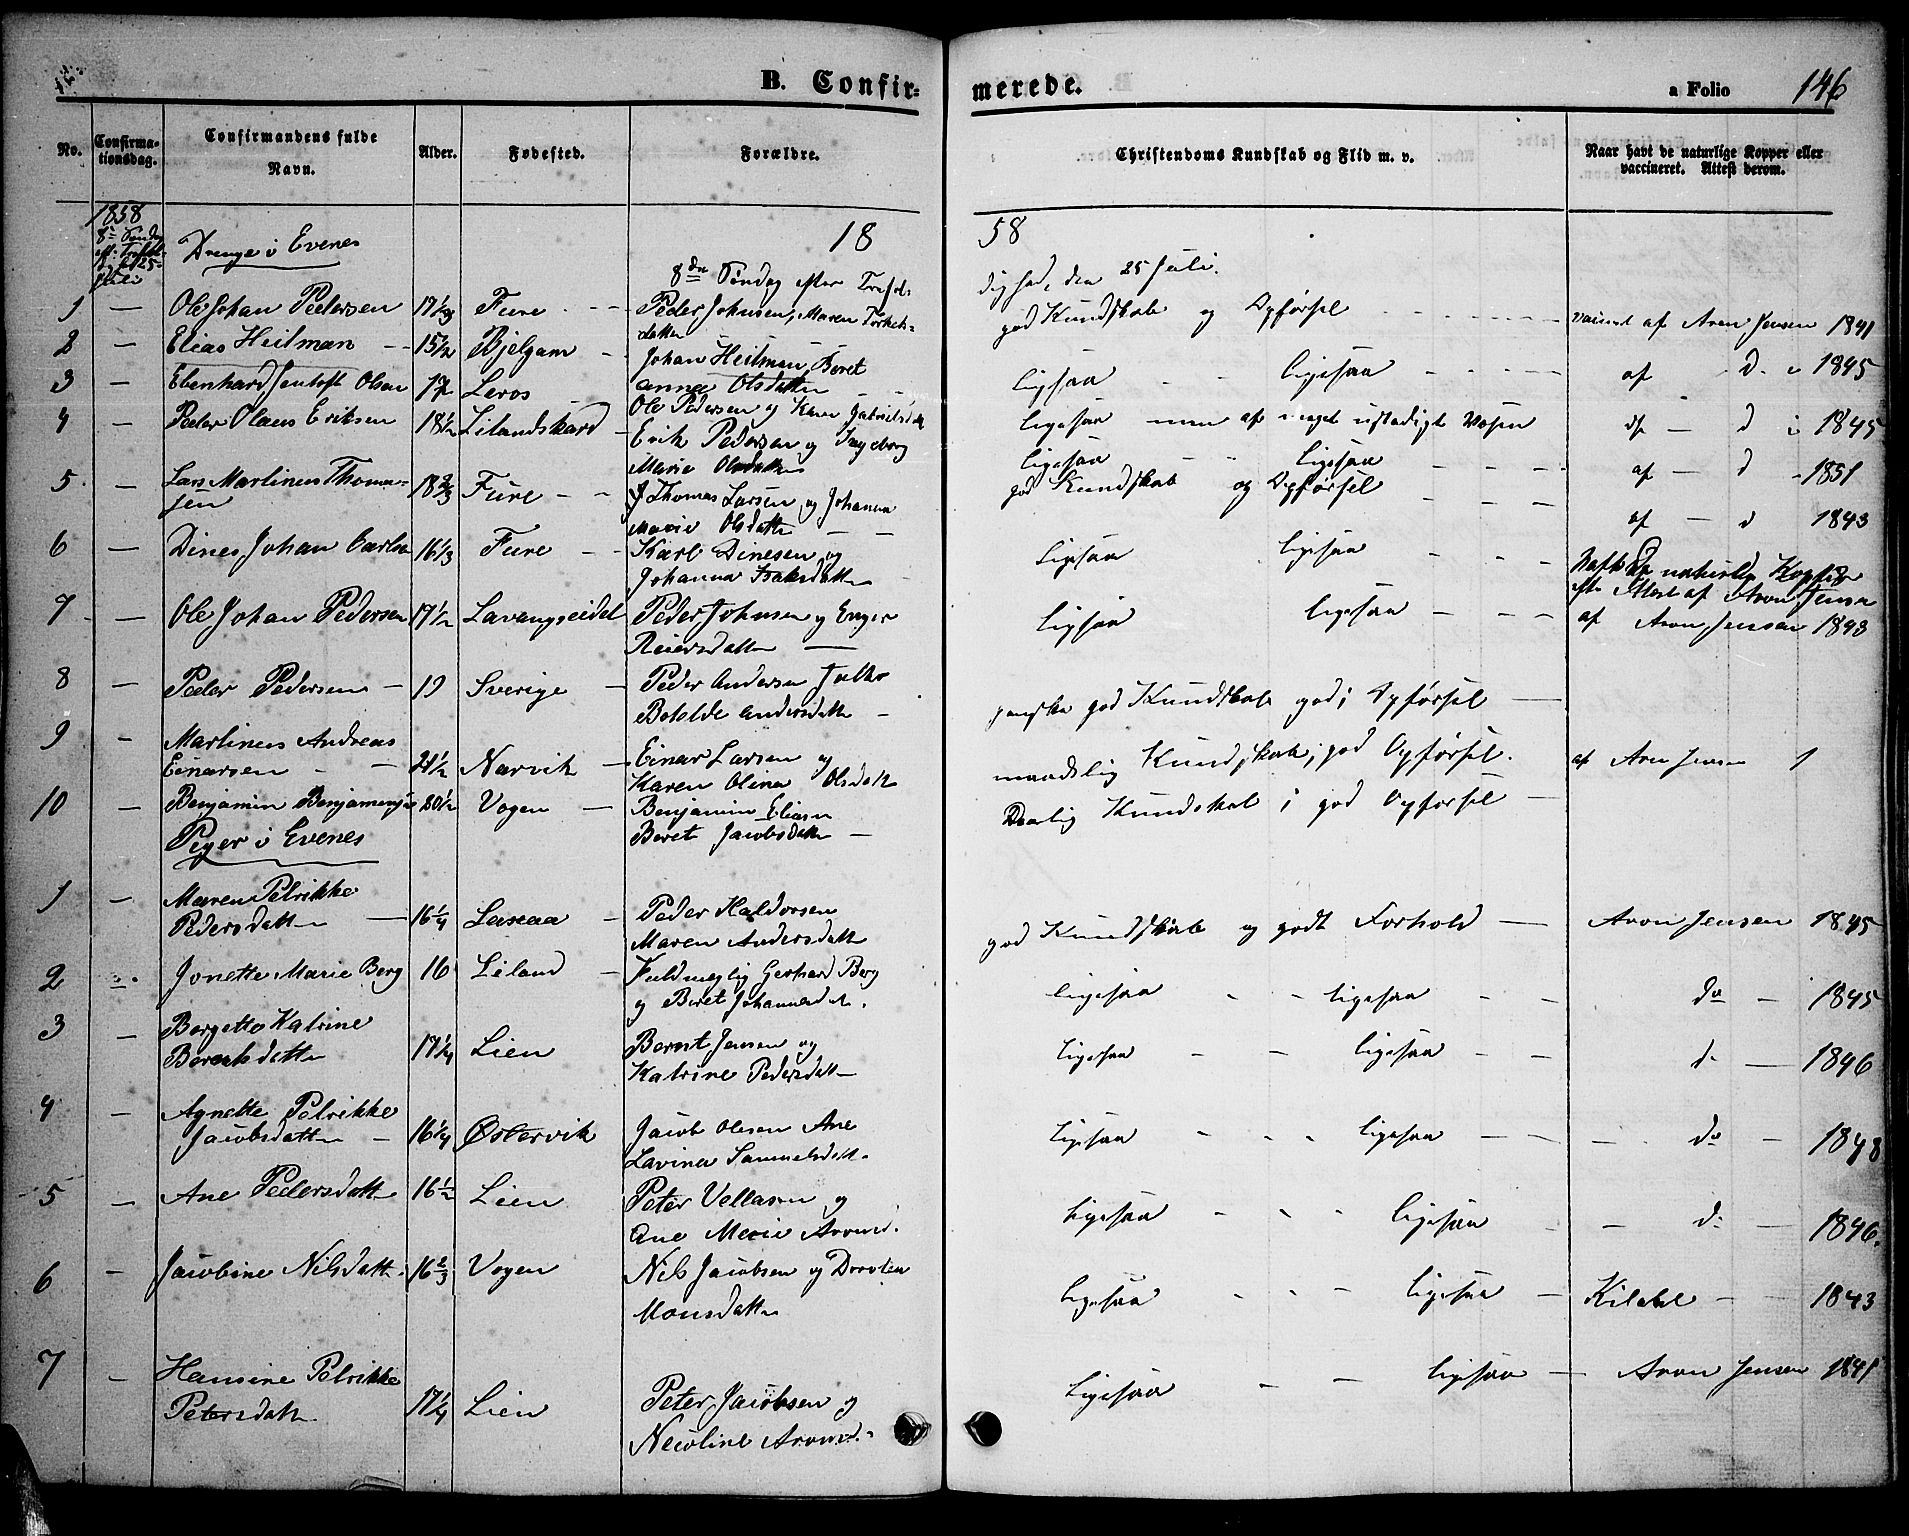 B. Confirmerede.
a Folio 146
No.
Confirmationsdag.
Confirmandens fulde Navn.
Alder.
Fødested.
Forældre.
Christendoms Kundskab og Flid m. v.
Naar havt de naturlige Kopper eller vaccineret. Attest derom.
1858
Drenge i Evenes
18 58
8de Søndag efter Trefol-
dighed, den 25 Juli.
1 — Ole Johan Pedersen 17 1/3 Fure Peder Johnsen, Maren Torkels-
datter god Kundskab og Opførsel af Aron Jensen 1841
2 — Elias Heitman 15 1/2 Bjelgam Johan Heitman, Beret
Anna Olsdatter ligesaa ligesaa af D 1845
3 — Ebenhard Jentoft Olsen 17 Leros Ole Pedersen og Karen Gabrielsd
ligesaa men af meget ustadigt Væsen d 1845
4 Peder Olaus Eriksen 18 1/2 Lilandskard Erik Pedersen og Ingeborg
Marie Olsdatter ligesaa ligesaa af — d 1851
5 — Lars Martinus Thoma-
sen 18 2/3 Fure Thomas Larsen og Johanna
Marie Olsdatter god Kundskab og Opførsel af — d 1843
6 — Dines Johan Carlsen 16 1/3 Fure Karl Dinesen og
Johanna Isaksdatter ligesaa ligesaa naturlige Kopper
Attest af Aron Jensen
7 — Ole Johan Pedersen 17 1/2 Lavangseidet Peder Johnsen og Enger
Reiersdatter — ligesaa ligesaa af Aron Jensen 1843
8 — Peder Pedersen 19 Sverige Peder Andersen
Botolde Andersdatter ganske god Kundskab god Opførsel
9 — Martinus Andreas
Einarsen 21 1/2 Narvik Einar Larsen og
Karen Olina Olsdatt maadelig Kundskab, god Opførsel. af Aron Jensen 1
10 — Benjamin Benjaminsen 20 1/2 Vogen Benjamin Eliasen
Beret Jacobsdatter Daarlig Kundskab i god Opførsel
Piger i Evenes
1 — Maren Petrikke
Pedersdatter 16 1/4 Laxaa Peder Haldorsen
Maren Andersdatt god Kundskab og godt Forhold — Aron Jensen 1845
2 Jonette Marie Berg 16 Liland Fuldmegtig Gerhard Berg
og Beret Johannesdat. ligesaa ligesaa do 1845
3 — Bergette Katrine
Berntsdatter 17 1/4 Lien Bernt Jensen og
Katrine Pedersdatt ligesaa ligesaa d — 1846
4 — Agnette Petrikke
Jacobsdatter 16 1/4 Østervik Jacob Olesen Ane
Lavina Samuelsdatt. ligesaa ligesaa do 1848
5 — Ane Pedersdatt 16 1/2 Lien Peter Vellasen og
Ane Marie Aronsd. ligesaa ligesaa d — 1846.
6 — Jacobine Nilsdatt. 16 2/3 Vogen Nils Jacobsen og Dorotea
Monsdatter ligesaa ligesaa Kildal 1843
7 — Hansine Petrikke
Petersdatt 17 1/4 Lien Peter Jacobsen og
Nicoline Aronsd. ligesaa ligesaa Aron Jensen 1841